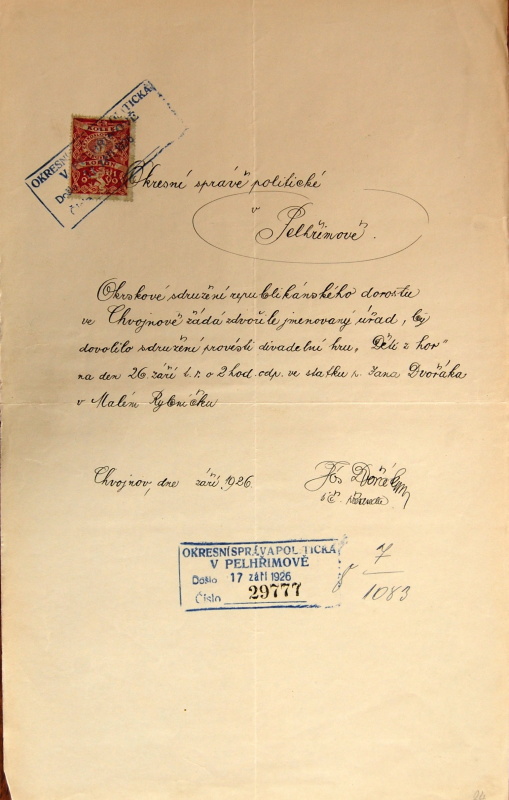 OKRESNÍ SPRÁVA POLITICKÁ
V PELHŘIMOVĚ
Došlo ZÁŘÍ 1926
Číslo
Okresní správě politické
v
Pelhřimově.
Okrskové sdružení republikánského dorostu
ve Chvojnově žádá zdvořile jmenovaný úřad, by
dovolilo sdružení provésti divadelní hru „Děti z hor"
na den 26. září t. r. o 2 hod. odp. ve statku p. Jana Dvořáka
v Malém Rybníčku
Chvojnov, dne září 1926
Jos Dvořák
OKRESNÍ SPRÁVA POLITICKÁ
V PELHŘIMOVĚ
Došlo 17 září 1926
Číslo 29777
7
1083